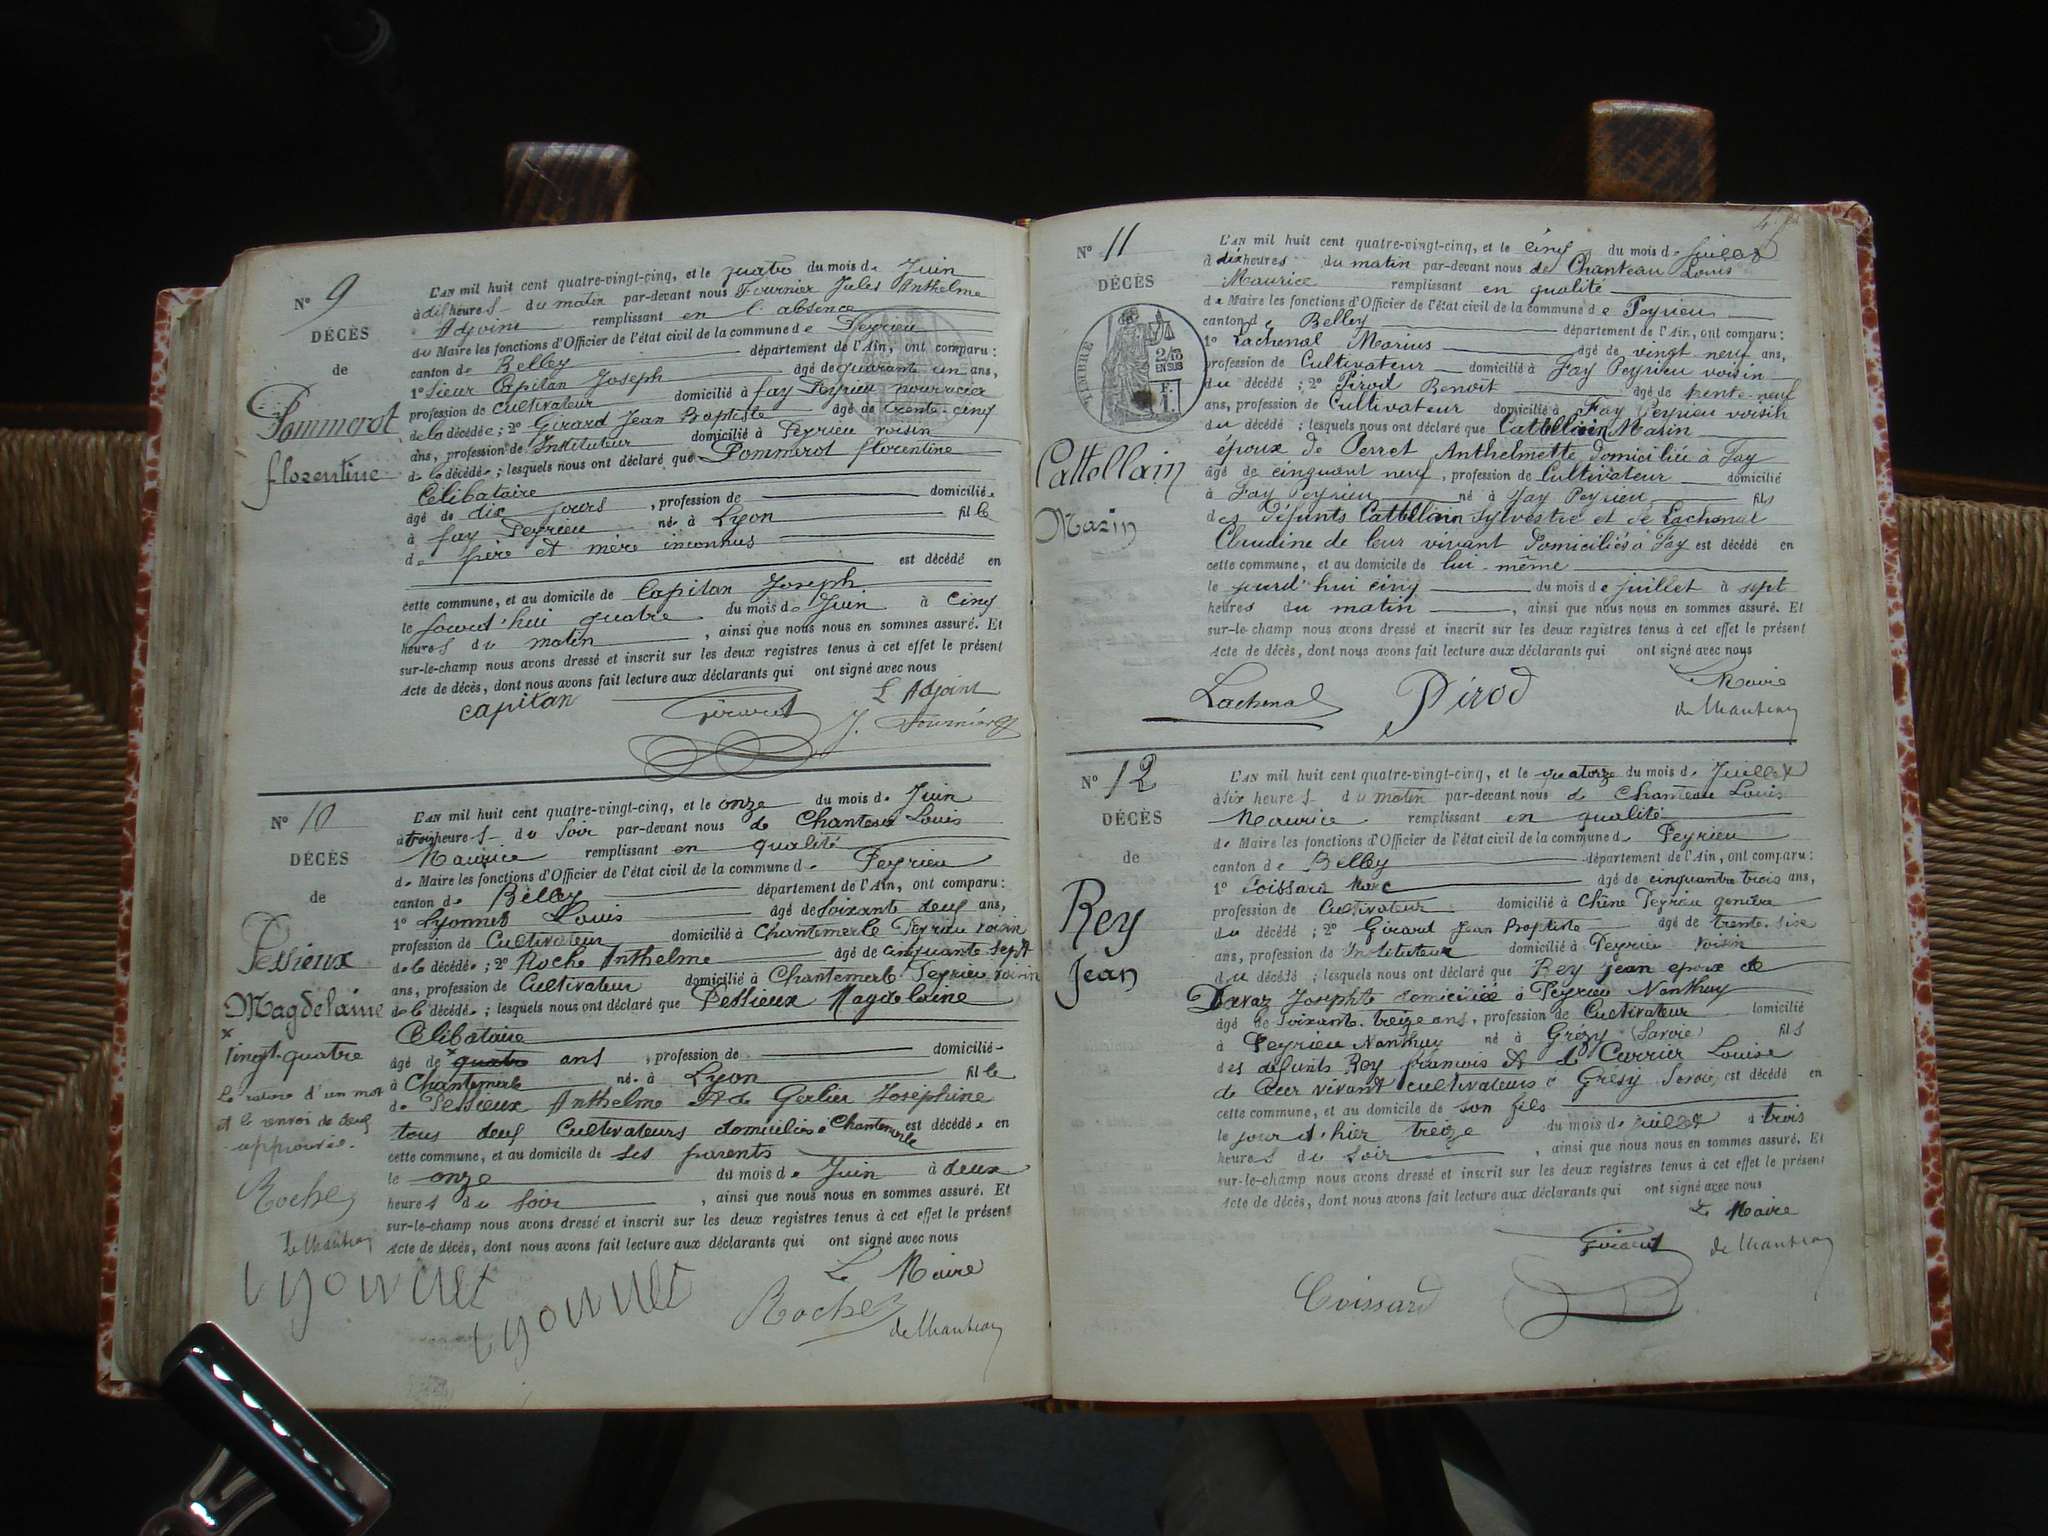 N° 9
DÉCÈS
de
Pommerot
florentine
L'AN mil huit cent quatre-vingt-cinq, et le quatre du mois de Juin
à dix heures du matin par-devant nous Fournier Jules Anthelme
Adjoint remplissant en l'absence
du Maire les fonctions d'Officier de l'état civil de la commune de Peyrieu
canton de Belley département de l'Ain, ont comparu :
1° Sieur Capitan Joseph âgé de quarante un ans,
profession de Cultivateur domicilié à fay Peyrieu nourricier
de la décédée ; 2° Girard Jean Baptiste âgé de trente-cinq
ans, profession de Instituteur domicilié à Peyrieu voisin
de la décédée ; lesquels nous ont déclaré que Pommerot florentine
Célibataire
âgé de dix jours , profession de domiciliée
à fay Peyrieu née à Lyon fille
de père et mère inconnus
est décédé en
cette commune, et au domicile de Capitan Joseph
le jourd'hui quatre du mois de Juin à cinq
heures du matin , ainsi que nous nous en sommes assuré. Et
sur-le-champ nous avons dressé et inscrit sur les deux registres tenus à cet effet le présent
Acte de décès, dont nous avons fait lecture aux déclarants qui ont signé avec nous
L'Adjoint
capitan Girard J. Fournier
N° 10
DÉCÈS
de
Pessieux
Magdelaine
x
vingt-quatre
La rature d'un mot
et le renvoi de deux
approuvée.
Roche
de Chanteau
L'AN mil huit cent quatre-vingt-cinq, et le onze du mois de Juin
à trois heures du soir par-devant nous de Chanteau Louis
Maurice remplissant en qualité
de Maire les fonctions d'Officier de l'état civil de la commune de Peyrieu
canton de Belley département de l'Ain, ont comparu :
1° Lyonnet Louis âgé de soixante deux ans,
profession de Cultivateur domicilié à Chantemerle Peyrieu voisin
de la décédée ; 2° Roche Anthelme âgé de cinquante sept
ans, profession de Cultivateur domicilié à Chantemerle Peyrieu voisin
de la décédée ; lesquels nous ont déclaré que Pessieux Magdelaine
Célibataire
âgé de x quatre ans , profession de domicilié
à Chantemerle née à Lyon fille
de Pessieux Anthelme et de Gerlier Joséphine
tous deux Cultivateurs domiciliés à Chantemerle est décédée en
cette commune, et au domicile de ses parents
le onze du mois de Juin à deux
heures du soir , ainsi que nous nous en sommes assuré. Et
sur-le-champ nous avons dressé et inscrit sur les deux registres tenus à cet effet le présent
Acte de décès, dont nous avons fait lecture aux déclarants qui ont signé avec nous
Le Maire
Lyonnet Lyonnet Roche de Chanteau
N° 11
DÉCÈS
de
TIMBRE
2/10
EN SUS
Cattellain
Marin
L'AN mil huit cent quatre-vingt-cinq, et le cinq du mois de Juillet
à dix heures du matin par-devant nous de Chanteau Louis
Maurice remplissant en qualité
de Maire les fonctions d'Officier de l'état civil de la commune de Peyrieu
canton de Belley département de l'Ain, ont comparu :
1° Lachenal Marius âgé de vingt neuf ans,
profession de Cultivateur domicilié à Fay Peyrieu voisin
du décédé ; 2° Pirod Benoit âgé de trente-neuf
ans, profession de Cultivateur domicilié à Fay Peyrieu voisin
du décédé ; lesquels nous ont déclaré que Cattellain Marin
époux de Perret Anthelmette domiciliée à Fay
âgé de cinquant neuf, profession de Cultivateur domicilié
à Fay Peyrieu né à Fay Peyrieu fils
des défunts Cattellain Sylvestre et de Lachenal
Claudine de leur vivant domiciliés à Fay est décédé en
cette commune, et au domicile de lui-même
le jourd'hui cinq du mois de juillet à sept
heures du matin , ainsi que nous nous en sommes assuré. Et
sur-le-champ nous avons dressé et inscrit sur les deux registres tenus à cet effet le présent
Acte de décès, dont nous avons fait lecture aux déclarants qui ont signé avec nous
Le Maire
Lachenal Pirod de Chanteau
N° 12
DÉCÈS
de
Rey
Jean
L'AN mil huit cent quatre-vingt-cinq, et le quatorze du mois de Juillet
à six heures du matin par-devant nous de Chanteau Louis
Maurice remplissant en qualité
de Maire les fonctions d'Officier de l'état civil de la commune de Peyrieu
canton de Belley département de l'Ain, ont comparu :
1° Coissard Marc âgé de cinquante trois ans,
profession de Cultivateur domicilié à Peyrieu
du décédé ; 2° Girard Jean Baptiste âgé de trente-six
ans, profession de Instituteur domicilié à Peyrieu voisin
du décédé ; lesquels nous ont déclaré que Rey Jean époux de
Josephte domiciliée à Peyrieu Nanthuy
âgé de soixante-treize ans, profession de Cultivateur domicilié
à Peyrieu Nanthuy né à Grézy (Savoie) fils
des défunts Rey françois et de Currier Louise
de leur vivant cultivateurs à Grésy Savoie, est décédé en
cette commune, et au domicile de son fils
le jour d'hier treize du mois de juillet à trois
heures du soir , ainsi que nous nous en sommes assuré. Et
sur-le-champ nous avons dressé et inscrit sur les deux registres tenus à cet effet le présent
Acte de décès, dont nous avons fait lecture aux déclarants qui ont signé avec nous
Le Maire
Girard de Chanteau
Coissard